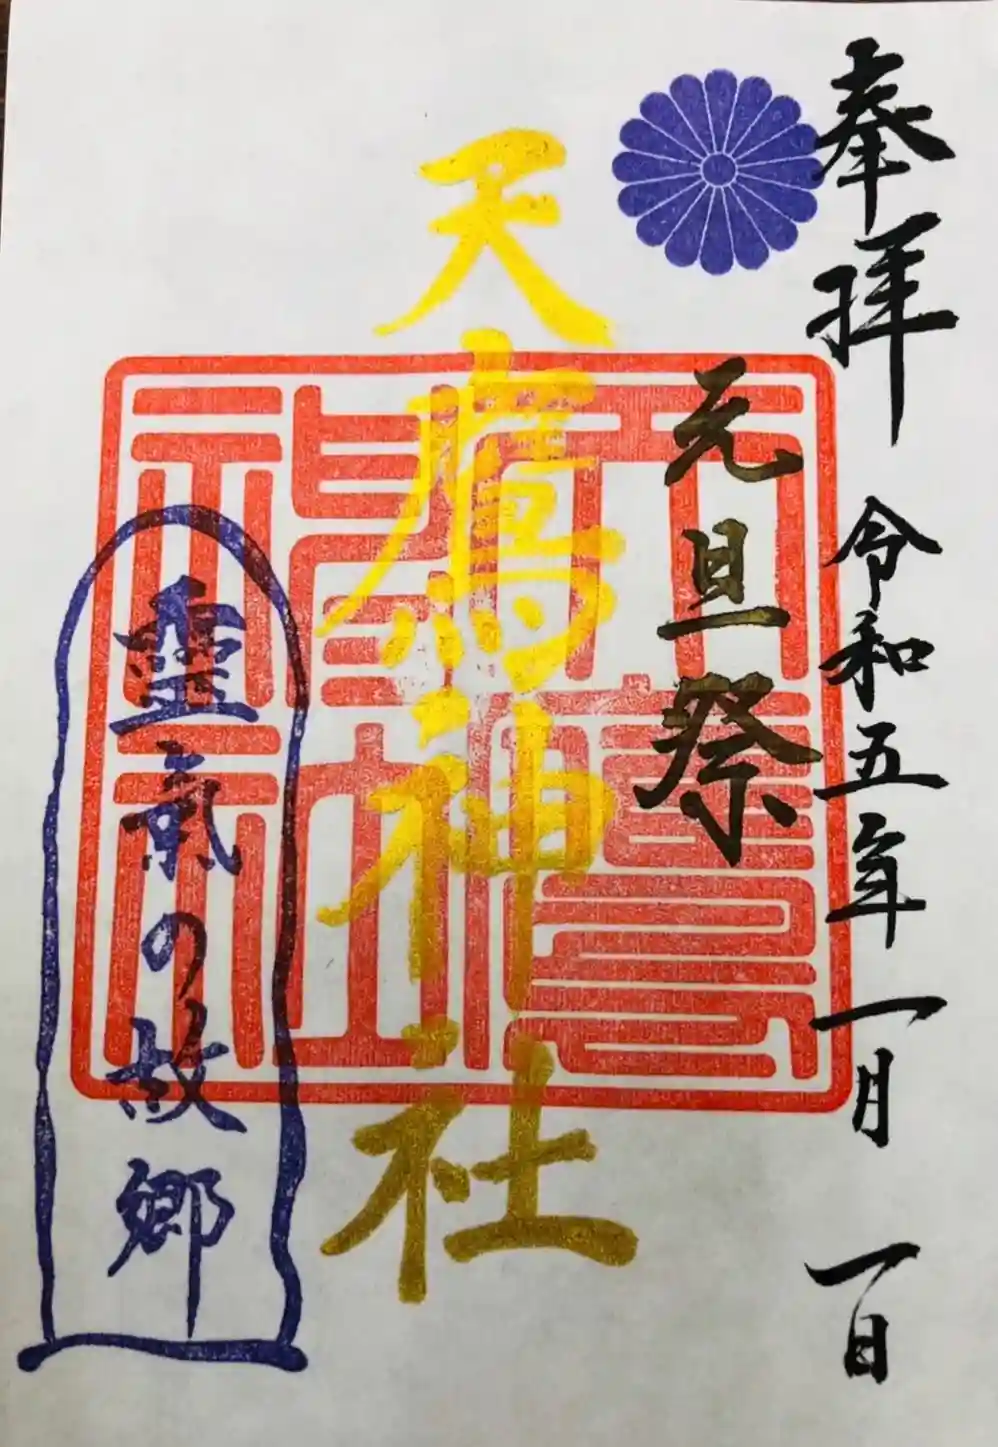 奉拝 令和五年一月一日
元旦祭
天鷹神社
靈氣の故郷